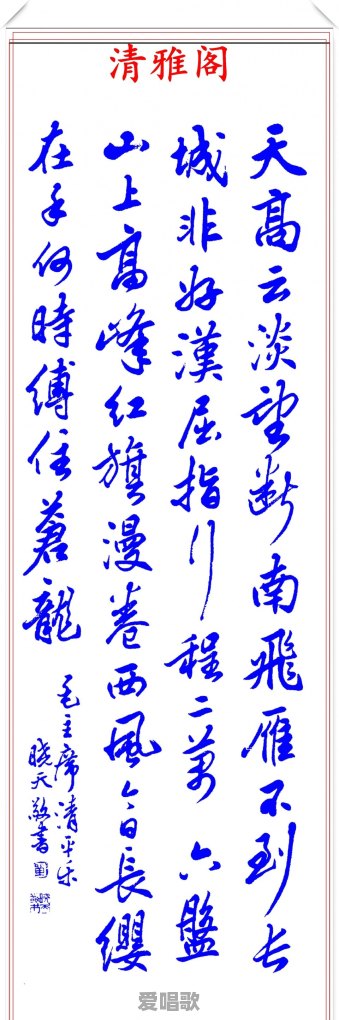 清雅阁
天高云淡望断南飛雁不到长
城非好漢屈指行程二萬 六盤
山上高峰红旗漫卷西风今日長缨
在手何時缚住蒼龍
毛主席清平乐
晓天敬書
爱唱歌